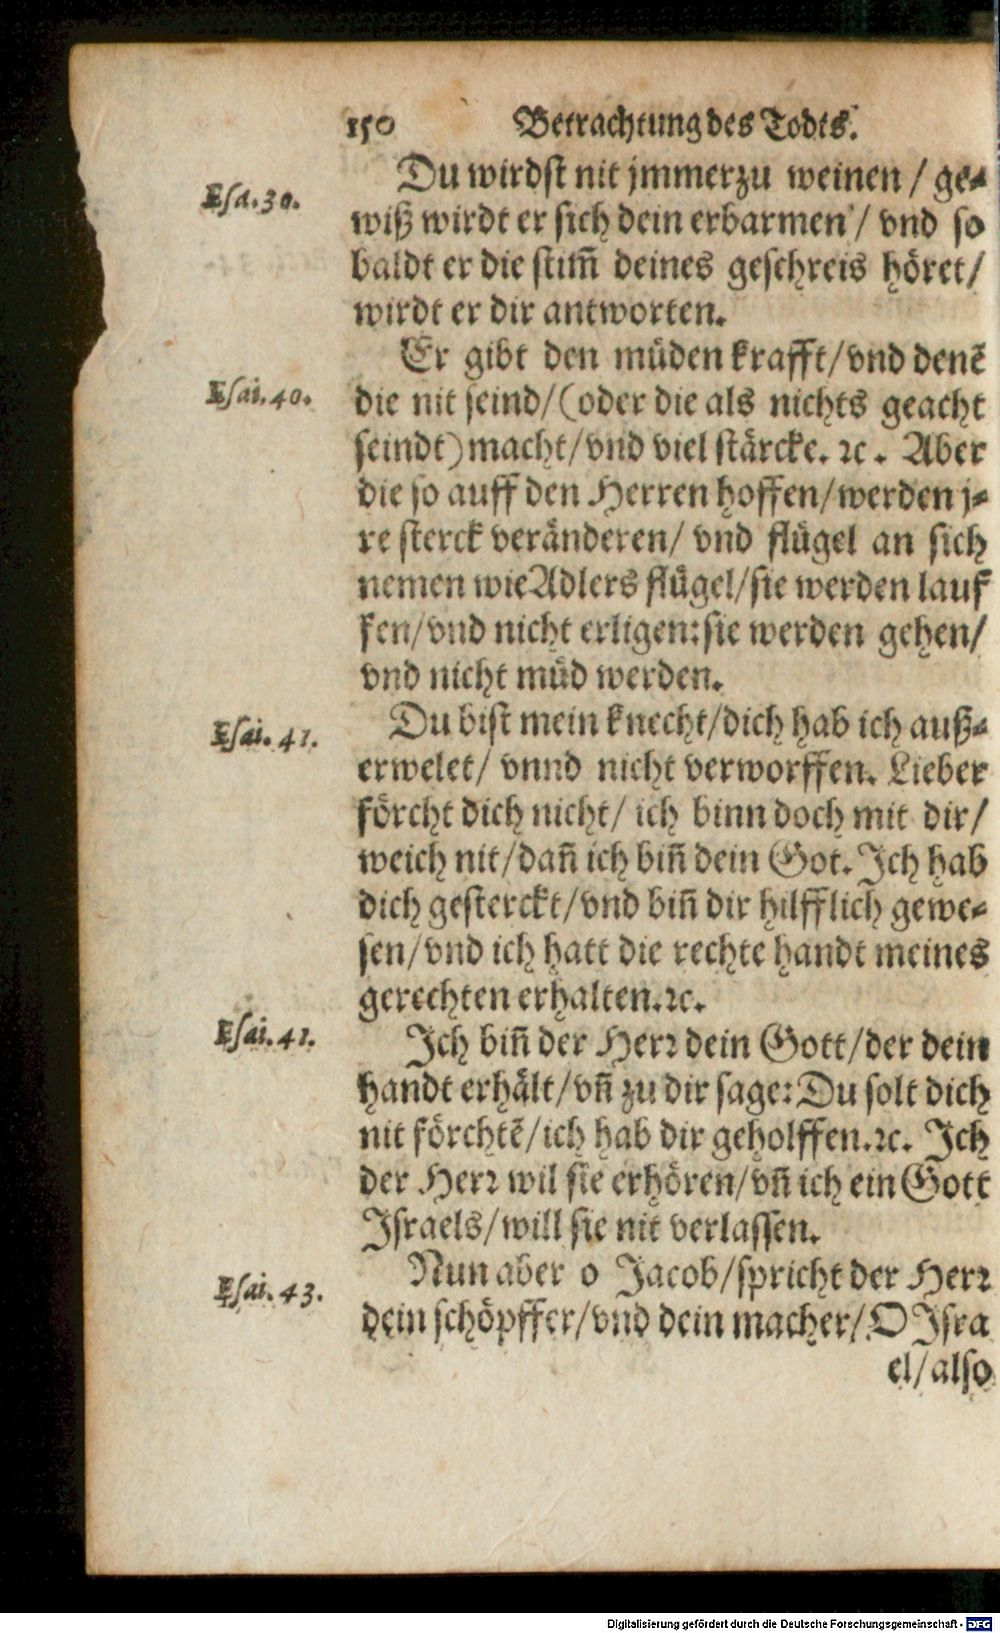 150 Betrachtung des Todts.
Du wirdst nit jmmerzu weinen / ge⸗
Esa. 30.
wiß wirdt er sich dein erbarmen / vnd so
baldt er die stim̃ deines geschreis höret/
wirdt er dir antworten.
Er gibt den müden krafft/vnd denẽ
Esai. 40.
die nit seind/(oder die als nichts geacht
seindt) macht/vnd viel stärcke. ꝛc. Aber
die so auff den Herren hoffen/werden j⸗
re sterck veränderen/ vnd flügel an sich
nemen wie Adlers flügel/sie werden lauf
fen/vnd nicht erligen:sie werden gehen/
vnd nicht müd werden.
Du bist mein knecht/dich hab ich auß⸗
Esai. 41.
erwelet/ vnnd nicht verworffen. Lieber
förcht dich nicht/ ich binn doch mit dir/
weich nit/dañ ich biñ dein Got. Ich hab
dich gesterckt/vnd biñ dir hilfflich gewe⸗
sen/vnd ich hatt die rechte handt meines
gerechten erhalten.ꝛc.
Esai. 41.
Ich biñ der Herꝛ dein Gott/der dein
handt erhält/vñ zu dir sage:Du solt dich
nit förchtẽ/ich hab dir geholffen.ꝛc. Ich
der Herꝛ wil sie erhören/vñ ich ein Gott
Israels/will sie nit verlassen.
Nun aber o Jacob/spricht der Herꝛ
Esai. 43.
dein schöpffer/vnd dein macher/O Isra
el/also
Digitalisierung gefördert durch die Deutsche Forschungsgemeinschaft - DFG